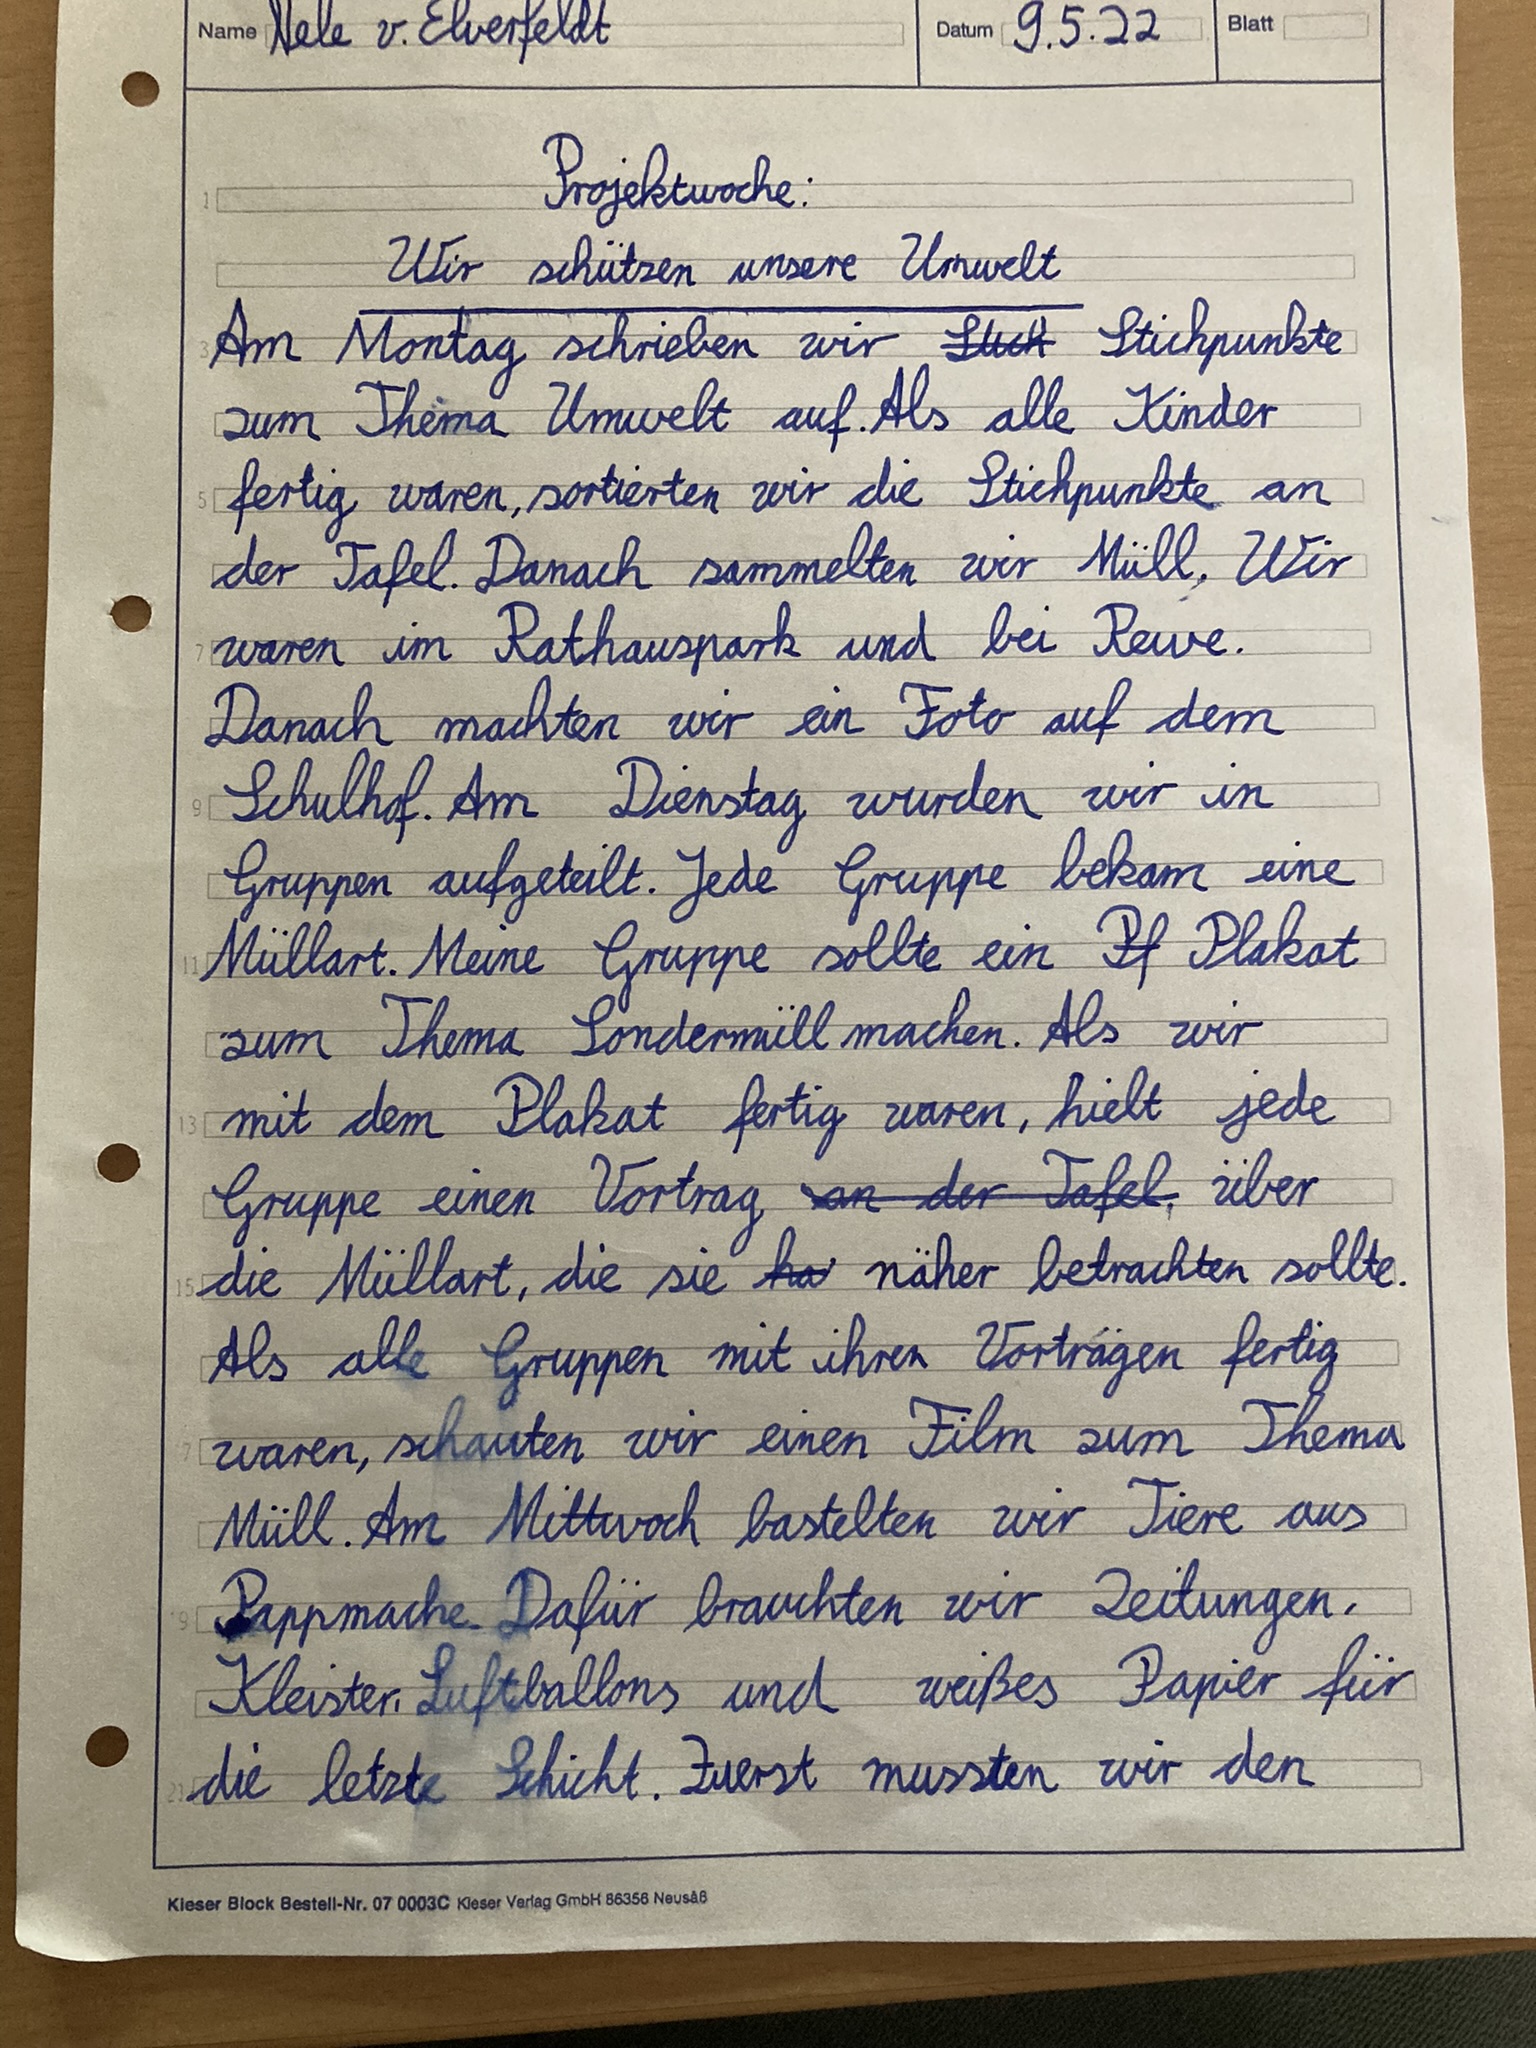 Name Nele v. Elverfeldt Datum 9.5.22 Blatt
Projektwoche:
Wir schützen unsere Umwelt
Am Montag schrieben wir Stichpunkte
zum Thema Umwelt auf. Als alle Kinder
fertig waren, sortierten wir die Stichpunkte an
der Tafel. Danach sammelten wir Müll. Wir
waren im Rathauspark und bei Rewe.
Danach machten wir ein Foto auf dem
Schulhof. Am Dienstag wurden wir in
Gruppen aufgeteilt. Jede Gruppe bekam eine
Müllart. Meine Gruppe sollte ein Pf Plakat
zum Thema Sondermüll machen. Als wir
mit dem Plakat fertig waren, hielt jede
Gruppe einen Vortrag an der Tafel, über
die Müllart, die sie ha näher betrachten sollte.
Als alle Gruppen mit ihren Vorträgen fertig
waren, schauten wir einen Film zum Thema
Müll. Am Mittwoch bastelten wir Tiere aus
Pappmache. Dafür brauchten wir Zeitungen,
Kleister, Luftballons und weißes Papier für
die letzte Schicht. Zuerst mussten wir den
Kieser Block Bestell-Nr. 07 0003C Kieser Verlag GmbH 86356 Neusäß